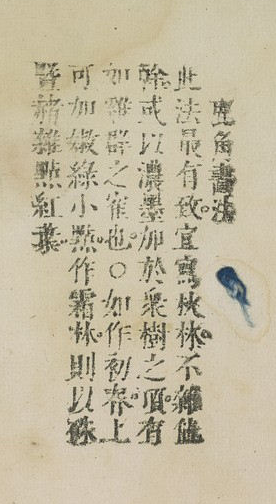 鹿角畫法
此法最有致。宜寫秋林。不雜他
榦。或以濃墨加於衆樹之頂。有
如雞群之寉也。○如作初春。上
可加嫩綠小點。作霜林。則以硃
暨赭雜點紅葉。